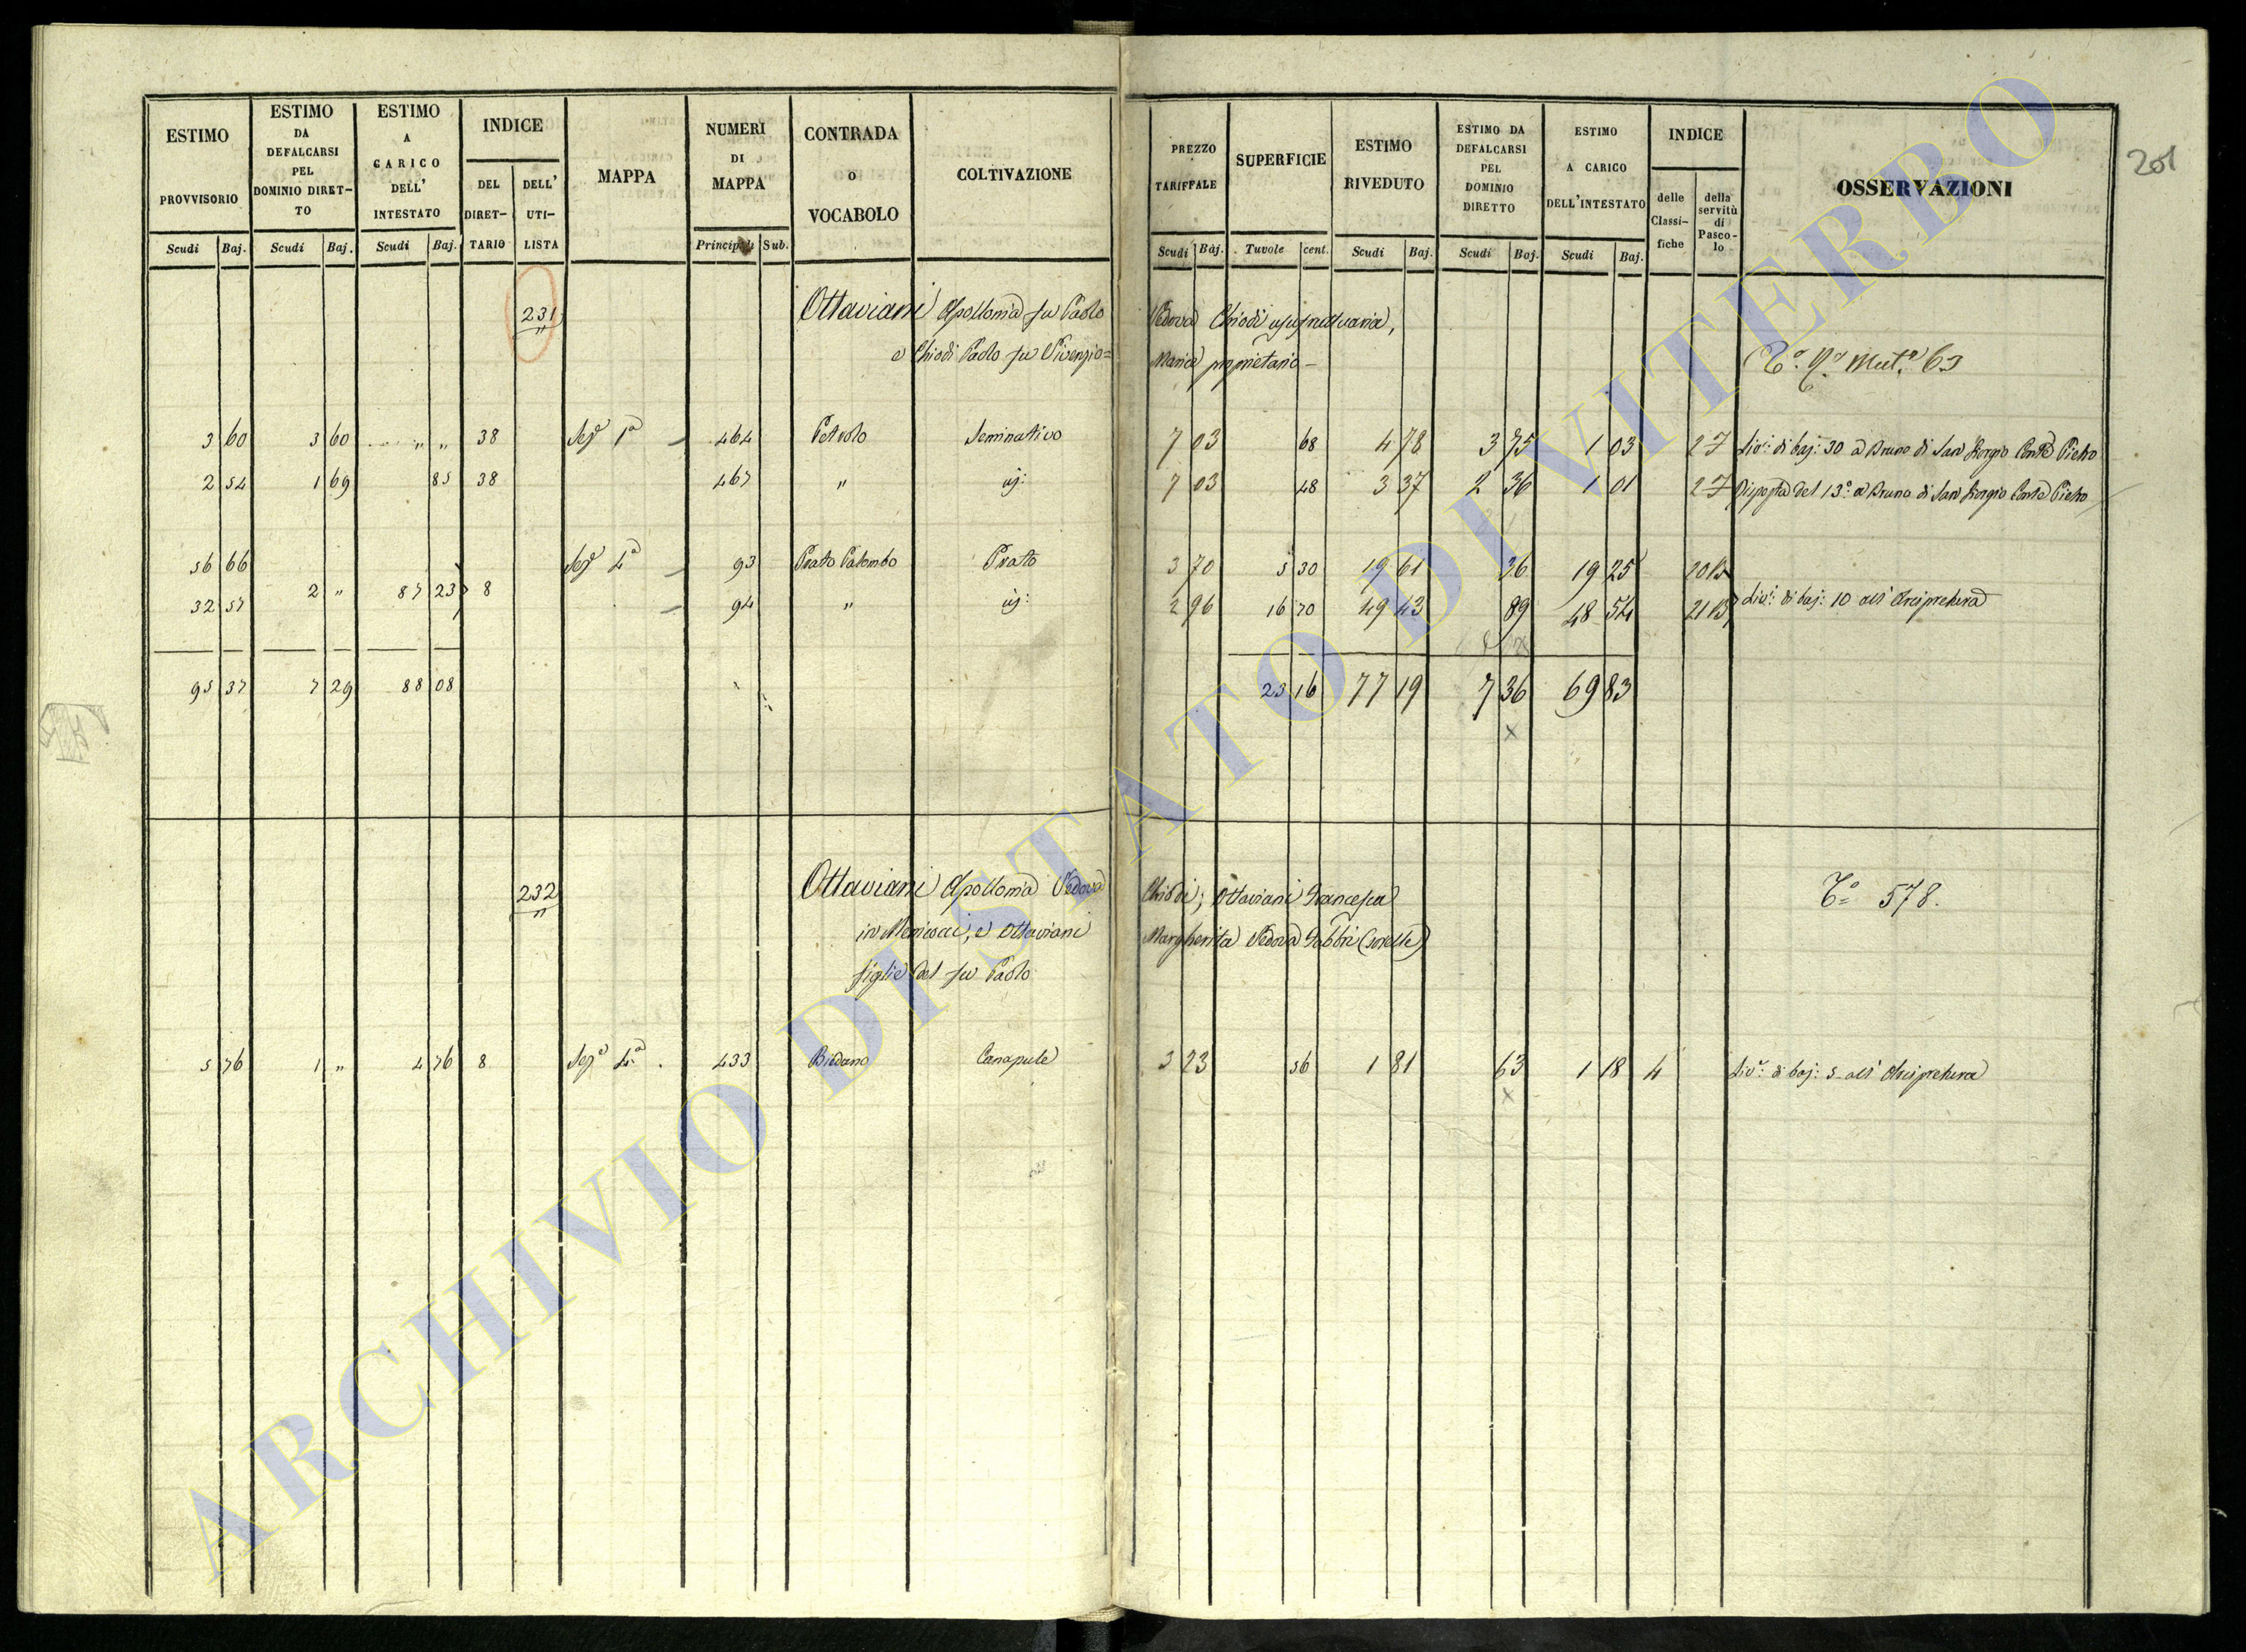 ESTIMO PROVVISORIO | ESTIMO DA DEFALCARSI PEL DOMINIO DIRET-TO | ESTIMO A CARICO DELL' INTESTATO | INDICE | MAPPA | NUMERI DI MAPPA | CONTRADA O VOCABOLO | COLTIVAZIONE | PREZZO TARIFFALE | SUPERFICIE | ESTIMO RIVEDUTO | ESTIMO DA DEFALCARSI PEL DOMINIO DIRETTO | ESTIMO A CARICO DELL'INTESTATO | INDICE | OSSERVAZIONI
201
DEL DIRET-TARIO | DELL' UTI-LISTA | delle Classi-fiche | della servitù di Pasco-lo
Scudi | Baj. | Scudi | Baj. | Scudi | Baj. | Sub. | Scudi | Baj. | Tavole | cent. | Scudi | Baj. | Scudi | Baj. | Scudi | Baj.
231 Ottaviani Apollonia fu Paolo Vedova Chiodi usufruttuaria,
e Chiodi Paolo fu Vivenzio= proprietario –
63
3 60 | 3 60 | " " | 38 | Sez.e 1a | 464 | Petrolo | Seminativo | 7 03 | 68 | 4 78 | 3 75 | 1 03 | 27 | Liv.o di baj: 30 a Bruno di San Giorgio Conte Pietro
2 54 | 1 69 | 85 | 38 | 467 | " | 7 03 | 48 | 3 37 | 2 36 | 1 01 | 27 | Risposta del 13.o a Bruno di San Giorgio Conte Pietro
56 66 | Sez.e 4a | 93 | Prato Palombo | Prato | 3 70 | 5 30 | 19 61 | 36 | 19 25 | 20 B
32 57 | 2 " | 87 23 | 8 | 94 | " | 2 96 | 16 70 | 49 43 | 89 | 48 54 | 21 B | Liv.o di baj: 10 all' Arcipretura
95 37 | 7 29 | 88 08 | 23 16 | 77 19 | 7 36 | 69 83
x
232 Ottaviani Apollonia Vedova Chiodi; Ottaviani Francesca
T.o 578.
in Menicocci, e Ottaviani Margherita Vedova Fabbri (sorelle)
figlie del fu Paolo
5 76 | 1 " | 4 76 | 8 | Sez.e 4a | 433 | Biedano | Canapule | 3 23 | 56 | 1 81 | 63 | 1 18 | 4 | Liv.o di baj: 5 all' Arcipretura
x
ARCHIVIO DI STATO DI VITERBO